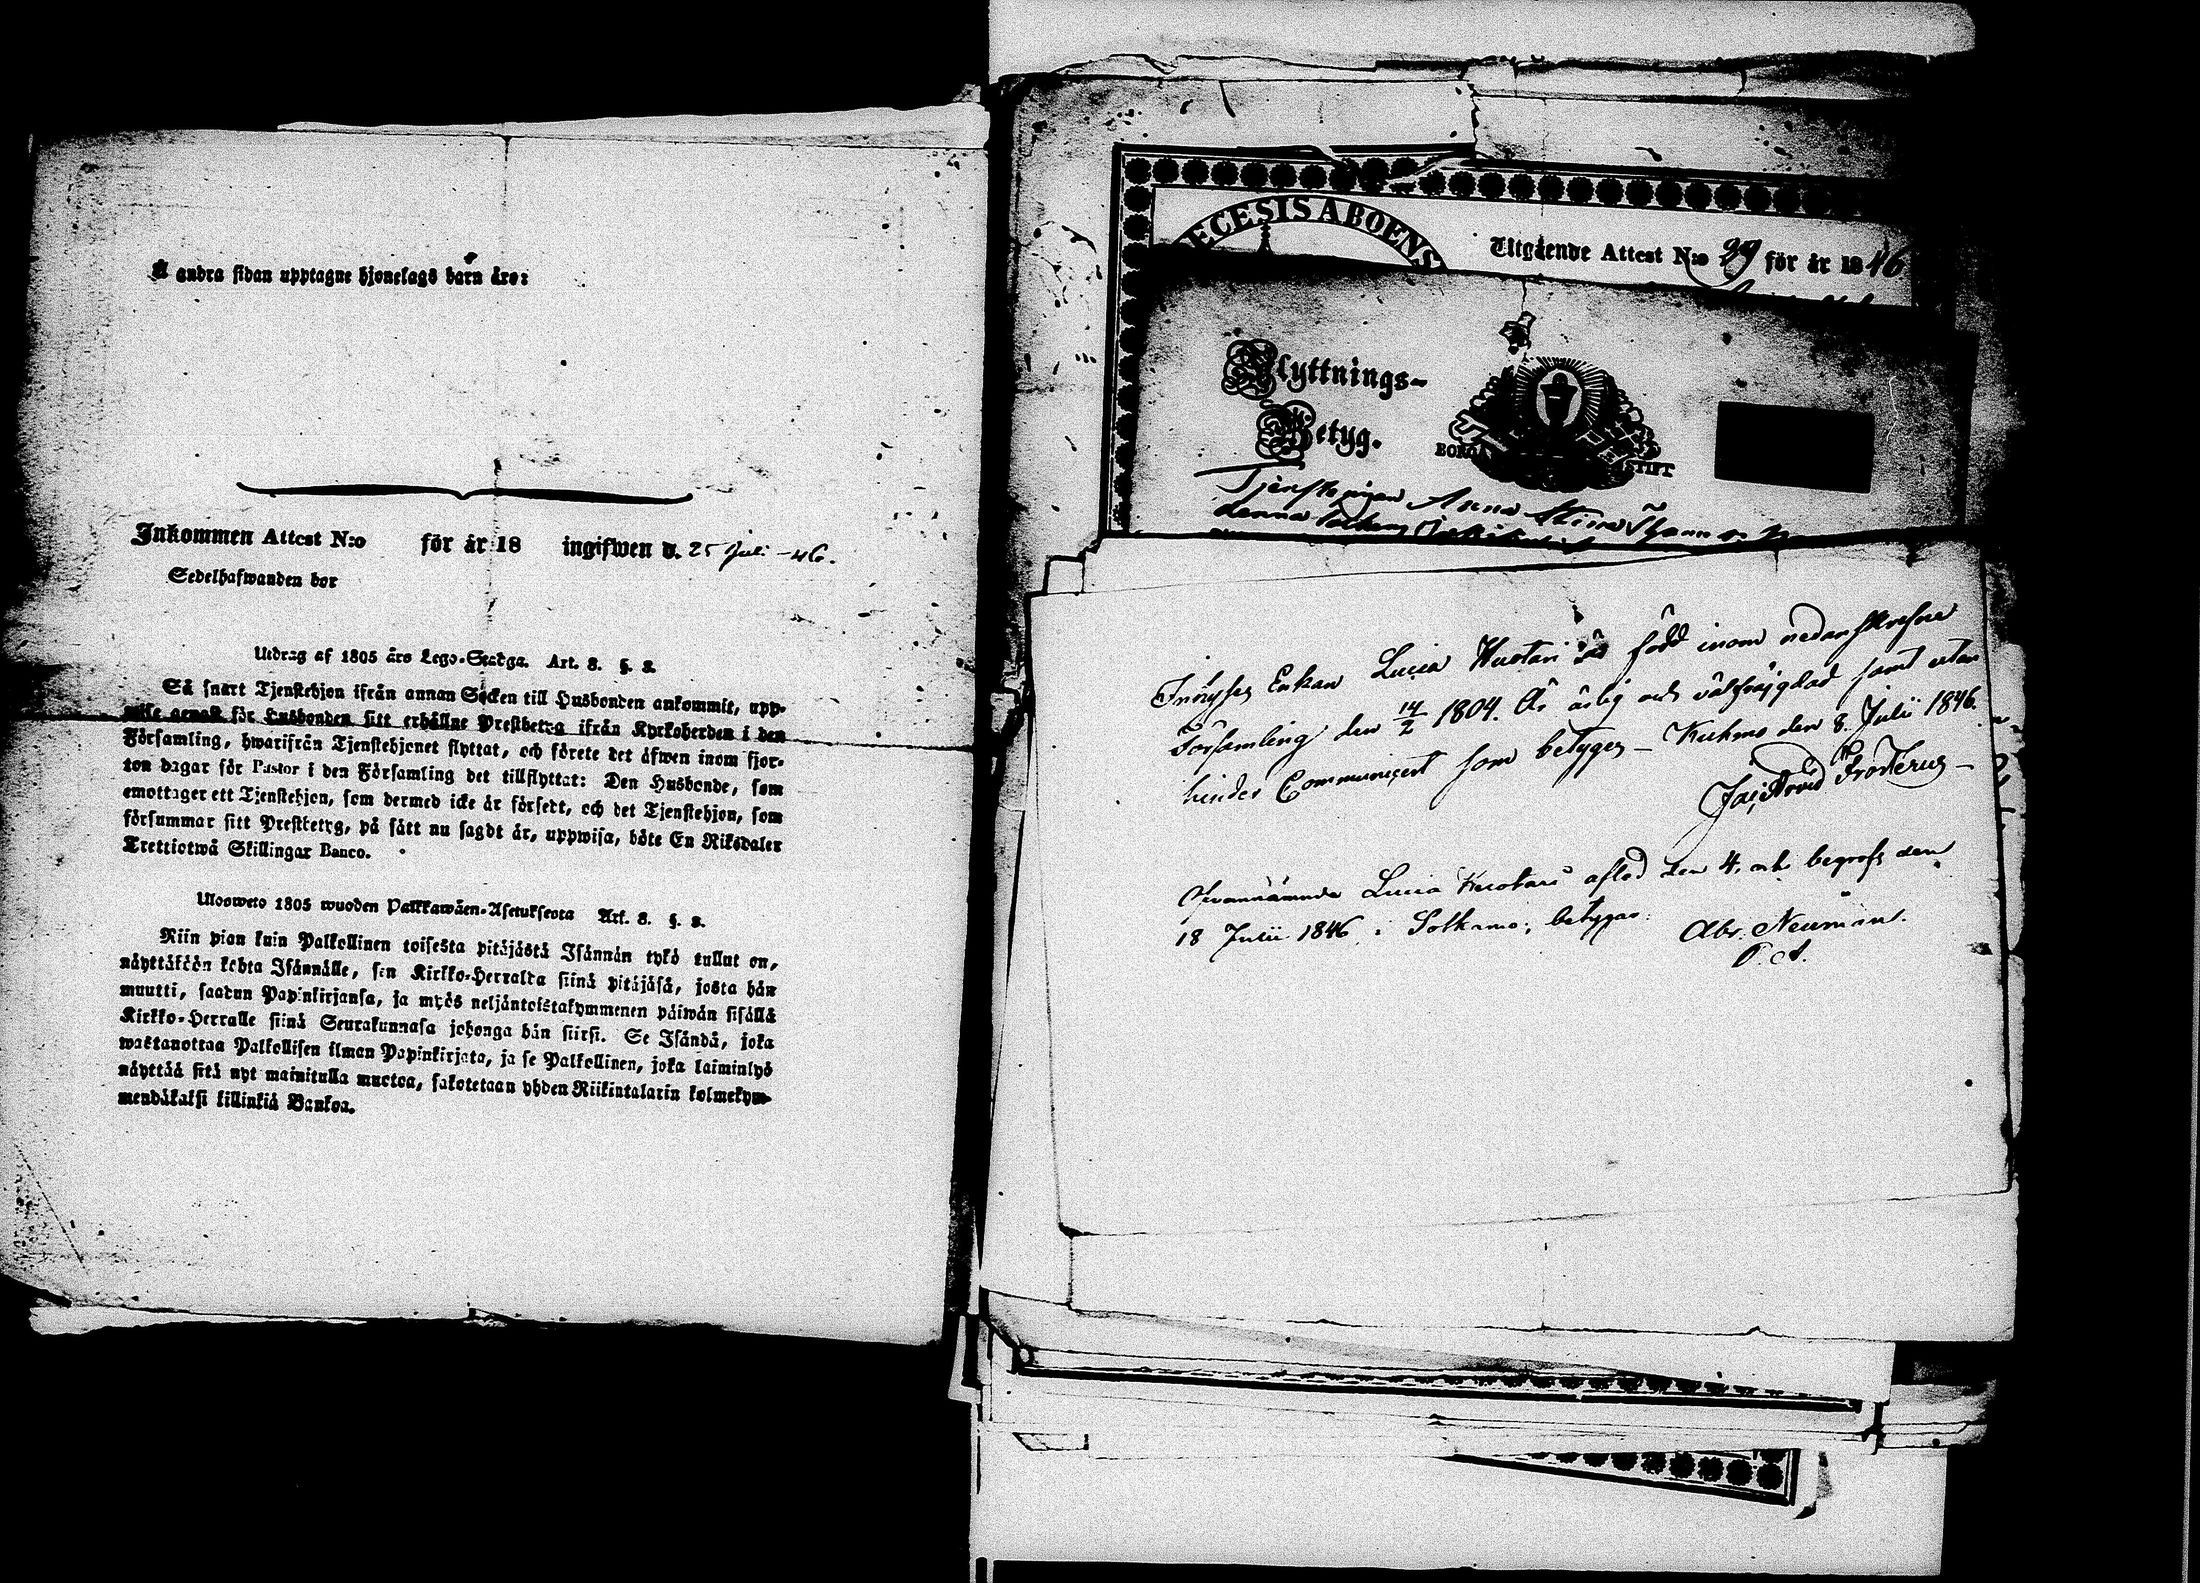 Å andra sidan upptagne hjonelags barn äro:
Inkommen Attest N:o för år 18 ingifwen d. 25 Juli -46.
Sedelhafwanden bor
Utdrag af 1805 års Lego-Stadga. Art. 8. §. 8.
Så snart Tjenstehjon ifrån annan Socken till Husbonden ankommit, upp-
wise genast för Husbonden sitt erhållne Prestbetyg ifrån Kyrkoherden i den
Församling, hwarifrån Tjenstehjonet flyttat, och förete det äfwen inom fjor-
ton dagar för Pastor i den Församling det tillflyttat: Den Husbonde, som
emottager ett Tjenstehjon, som dermed icke är försedt, och det Tjenstehjon, som
försummar sitt Prestbetyg, på sätt nu sagdt är, uppwisa, böte En Riksdaler
Trettiotwå Skillingar Banco.
Ulosweto 1805 wuoden Palkkawäen-Asetuksesta Art. 8. §. 8.
Niin pian kuin Palkollinen toisesta pitäjästä Isännän tykö tullut on,
näyttäköön kohta Isännälle, sen Kirkko-Herralda siinä pitäjäsä, josta hän
muutti, saadun Papinkirjansa, ja myös neljäntoistakymmenen päiwän sisällä
Kirkko-Herralle siinä Seurakunnasa johonga hän siirsi. Se Isändä, joka
wastanottaa Palkollisen ilman Papinkirjata, ja se Palkollinen, joka laiminlyö
näyttää sitä nyt mainitulla muotoa, sakotetaan yhden Riikintalarin kolmekym-
mendäkaksi killinkiä Bankoa.
ECESIS ABOENS
Utgående Attest N:o 39 för år 1846
Flyttnings-
Betyg.
BORGÅ STIFT
Tjenstepigan Anna Stina
denna Socken
Enkan Lucia Huotari är född inom nedanskrefne
Församling den 14/2 1804. Är ärlig och välfräjgdad samt utan
hinder Communicert som betygas – Kuhmo den 8. Julii 1846.
Jac. Arvid Frosterus –
Ofvannämnde Lucia Huotari afled den 4. och begrofs den
18 Julii 1846 i Sotkamo; betygar: Abr. Neuman.
P. A.